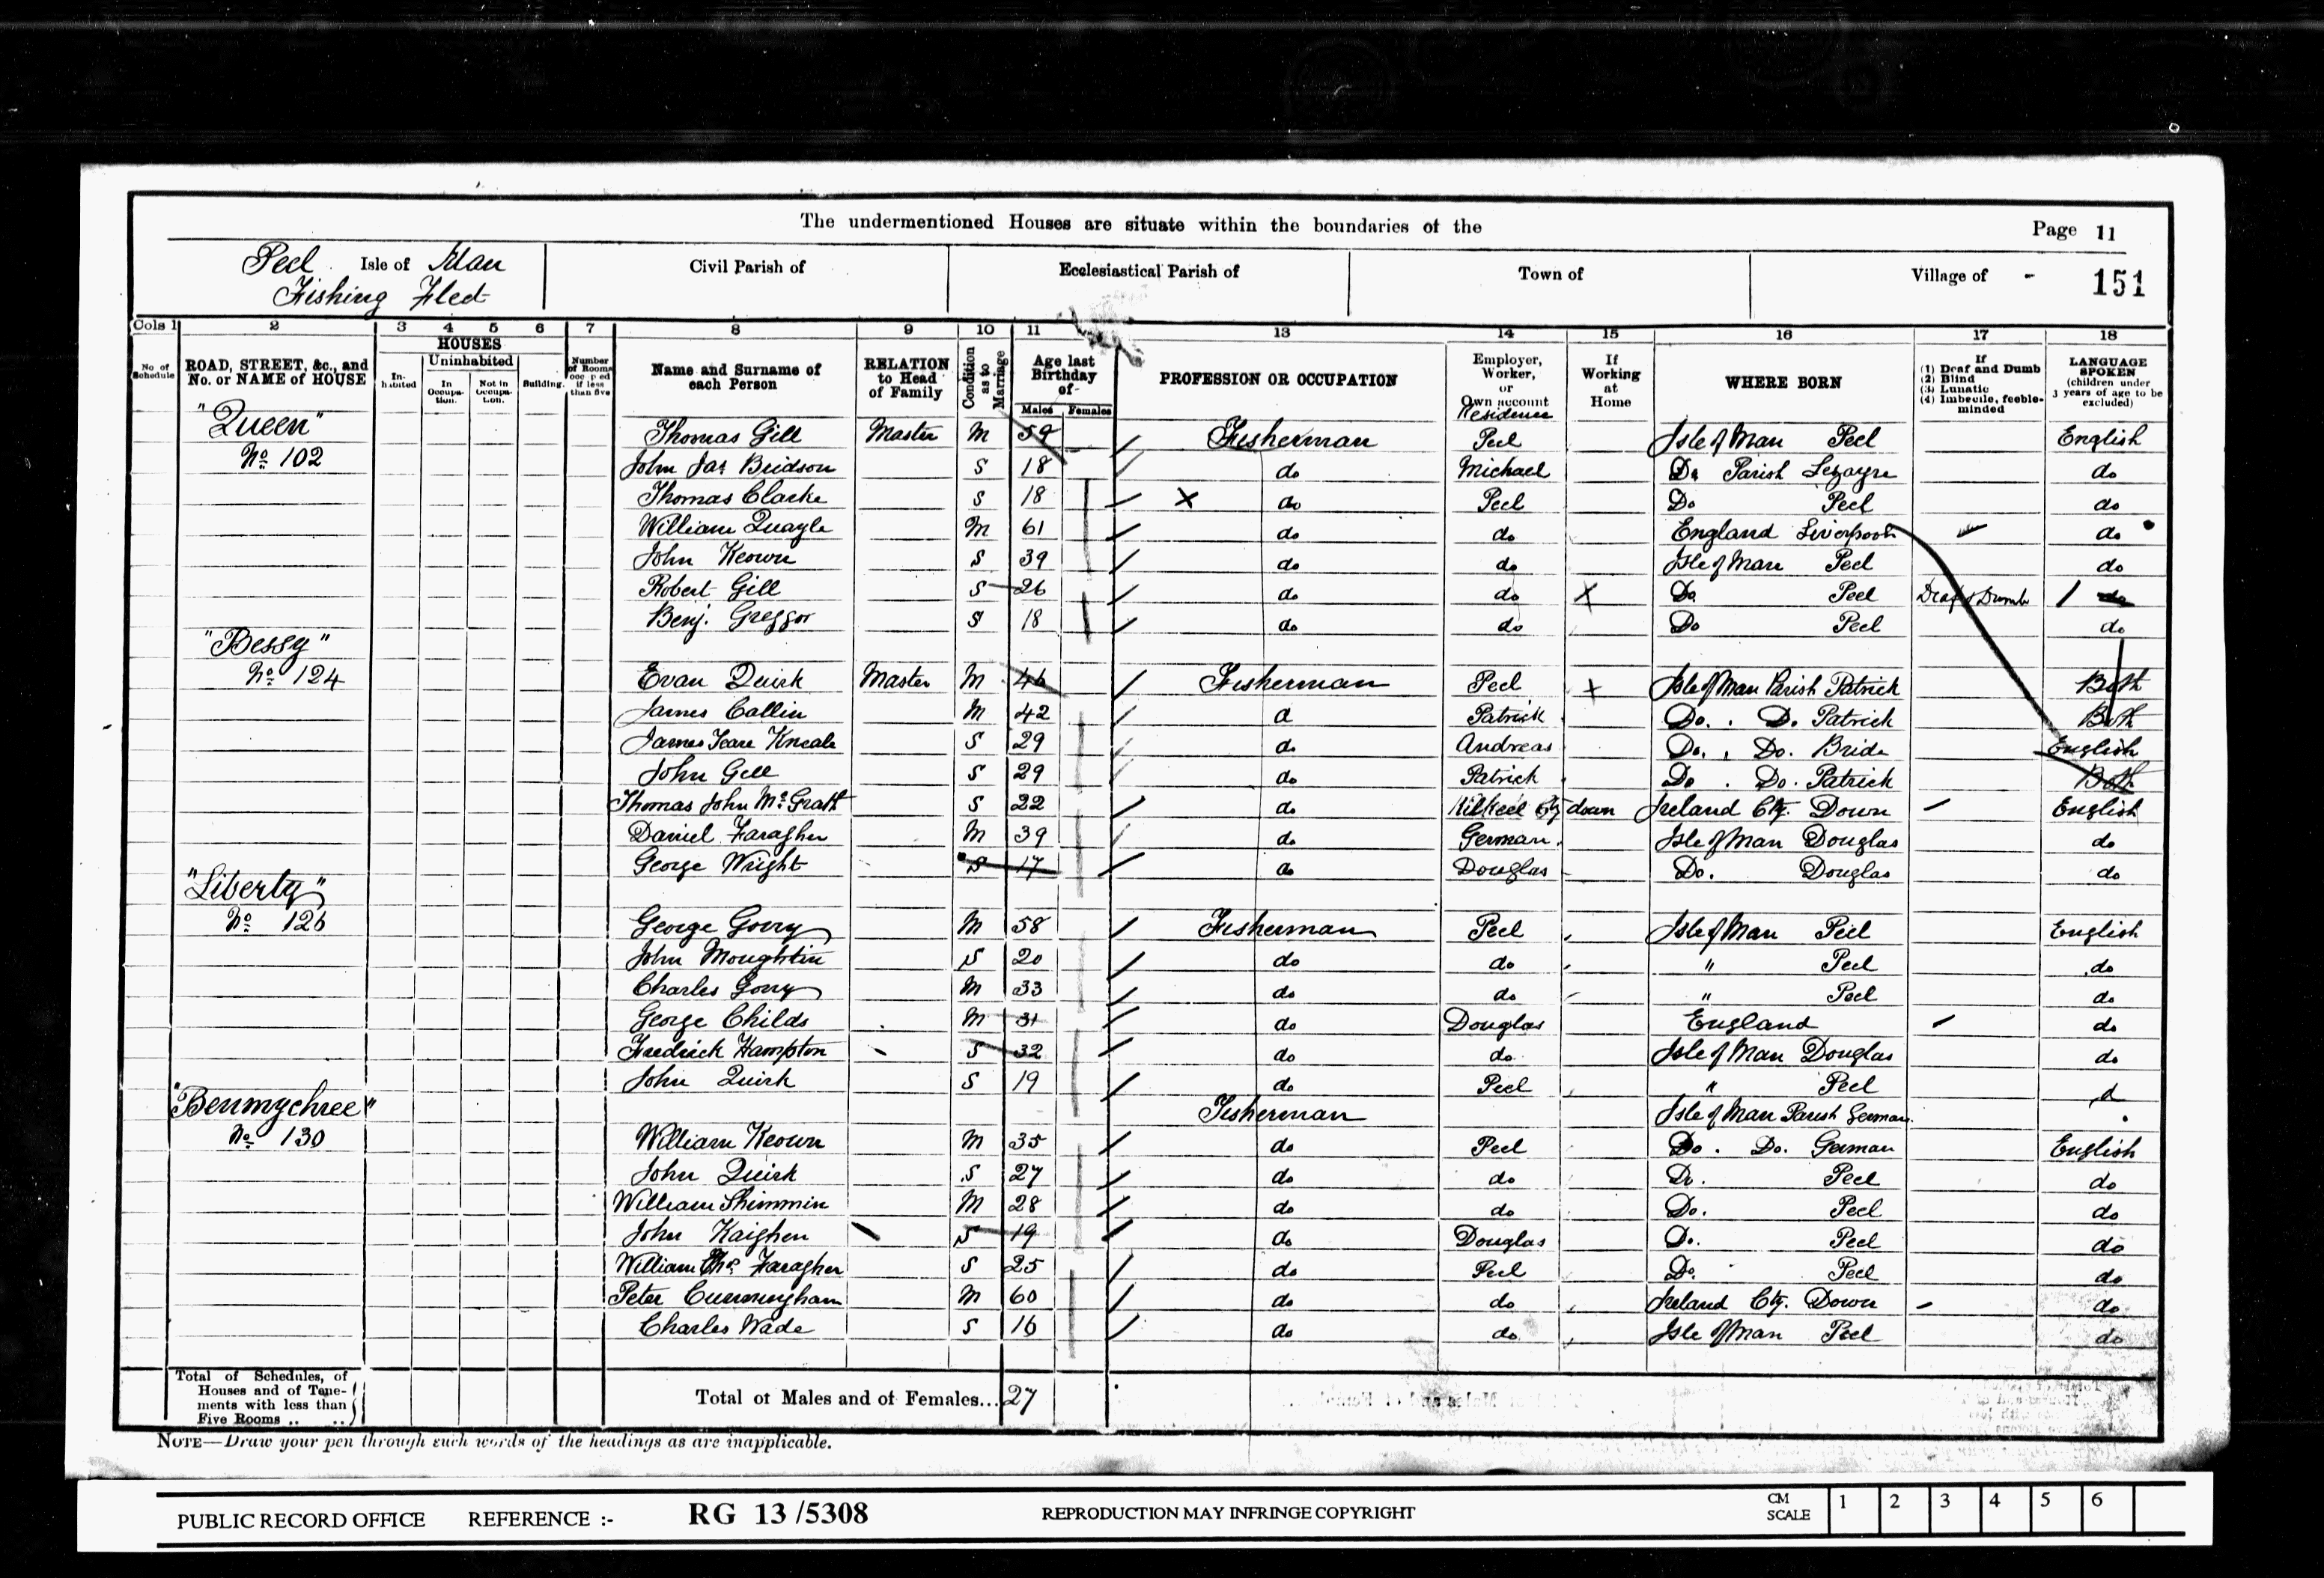 The undermentioned Houses are situate within the boundaries of the
Page 11
Peel Isle of Man
Fishing Fleet
Civil Parish of
Ecclesiastical Parish of
Town of
Village of -
151
Cols 1 2 3 4 5 6 7 8 9 10 11 13 14 15 16 17 18
No. of Schedule
ROAD, STREET, &c., and No. or NAME of HOUSE
HOUSES
Inhabited
Uninhabited
In Occupation.
Not in Occupation.
Building.
Number of Rooms occupied if less than five
Name and Surname of each Person
RELATION to Head of Family
Condition as to Marriage
Age last Birthday of-
Males Females
PROFESSION OR OCCUPATION
Employer, Worker, or Own account
Residence
If Working at Home
WHERE BORN
If (1) Deaf and Dumb (2) Blind (3) Lunatic (4) Imbecile, feeble-minded
LANGUAGE SPOKEN (children under 3 years of age to be excluded)
"Queen"
Thomas Gill Master M 59 Fisherman Peel Isle of Man Peel English
No. 102 John Jas Bridson S 18 do Michael Do Parish Lezayre do
Thomas Clarke S 18 X do Peel Do Peel do
William Quayle M 61 do do England Liverpool do
John Keown S 39 do do Isle of Man Peel do
Robert Gill S 26 do do X Do Peel Deaf & Dumb 1 do
Benj. Greggor S 18 do do Do Peel do
"Bessy"
No. 124 Evan Quirk Master M 46 Fisherman Peel X Isle of Man Parish Patrick Both
James Callin M 42 d Patrick Do. Do. Patrick Both
James Teare Kneale S 29 do Andreas Do. Do. Bride English
John Gell S 29 do Patrick Do. Do. Patrick Both
Thomas John McGrath S 22 do Kilkeel Cty down Ireland Cty. Down English
Daniel Faragher M 39 do German Isle of Man Douglas do
George Wright S 17 do Douglas Do. Douglas do
"Liberty"
No. 126 George Gorry M 58 Fisherman Peel Isle of Man Peel English
John Moughtin S 20 do do " Peel do
Charles Gorry M 33 do do " Peel do
George Childs M 31 do Douglas England do
Fredrick Hampton S 32 do do Isle of Man Douglas do
John Quirk S 19 do Peel " Peel d
"Benmychree" Fisherman Isle of Man Parish German
No. 130 William Keown M 35 do Peel Do. Do. German English
John Quirk S 27 do do Do. Peel do
William Shimmin M 28 do do Do. Peel do
John Kaighen S 19 do Douglas Do. Peel do
William Thos. Faragher S 25 do Peel Do. Peel do
Peter Cunningham M 60 do do Ireland Cty. Down do
Charles Wade S 16 do do Isle of Man Peel do
Total of Schedules, of Houses and of Tenements with less than Five Rooms .. ..
Total of Males and of Females... 27
NOTE—Draw your pen through such words of the headings as are inapplicable.
PUBLIC RECORD OFFICE REFERENCE :- RG 13 /5308 REPRODUCTION MAY INFRINGE COPYRIGHT CM SCALE 1 2 3 4 5 6